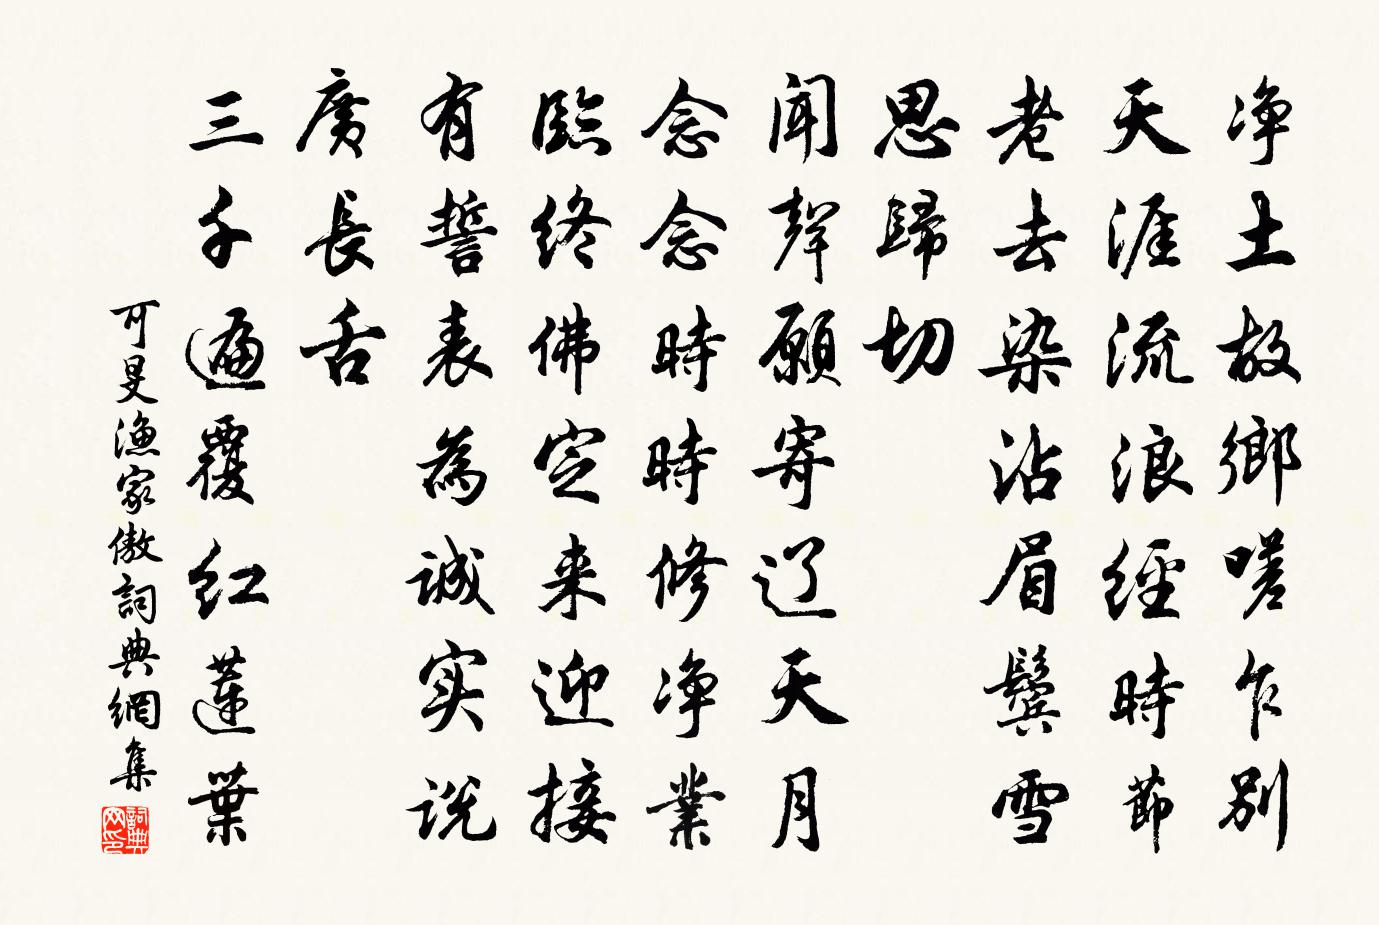 净土故鄉嗟乍別
天涯流浪經時節
老去染沾眉鬓雪
思歸切
闻聲願寄辽天月
念念時時修净業
臨终佛定来迎接
有誓表為誠实说
廣長舌
三千遍覆红蓮葉
可旻漁家傲詞典網集
詞典网印